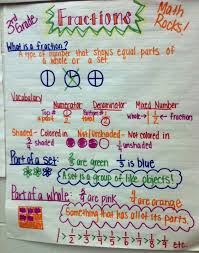 3rd Grade
Fractions
Math Rocks!
What is a fraction?
A type of number that shows equal parts of a whole or a set.
Vocabulary
Numerator Denominator Mixed Number
Top # Bottom # whole → 1 1/2 ← fraction
Shaded - Colored in Not/Unshaded - Not colored in
Part of a set: are green is blue
A set is a group of like objects!
Part of a whole: are pink are orange
Something that has all of its parts.
1 > 1/2 > 1/3 > 1/4 > 1/5 > 1/6 > 1/7 > 1/8 > 1/9 etc.